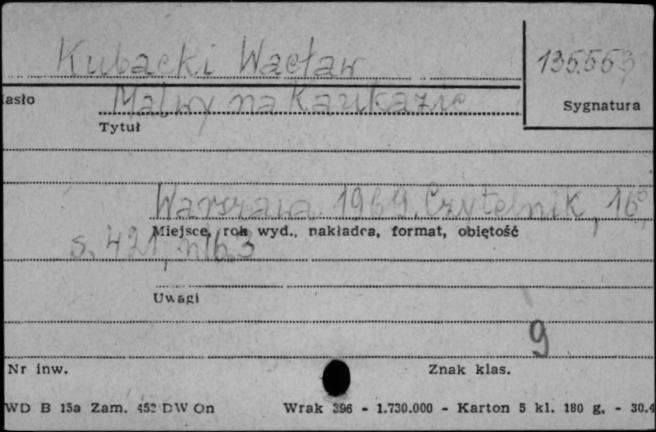 Kubacki Wacław
135.563
Hasło
Malwy na Kaukazie
Sygnatura
Tytuł
Warszawa 1969. Czytelnik, 16°,
Miejsce, rok wyd., nakładca, format, objętość
s. 421, nlb. 3
Uwagi
9
Nr inw.
Znak klas.
WD B 15a Zam. 452 DW On Wrak 396 - 1.730.000 - Karton 5 kl. 180 g. - 30.4